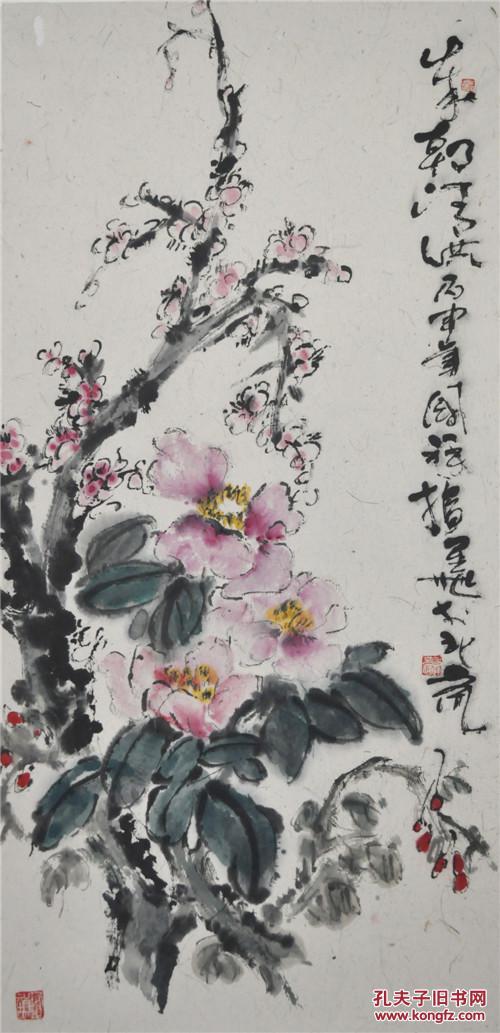 岁朝清供丙申年国祥指墨
孔夫子旧书网
www.kongfz.com